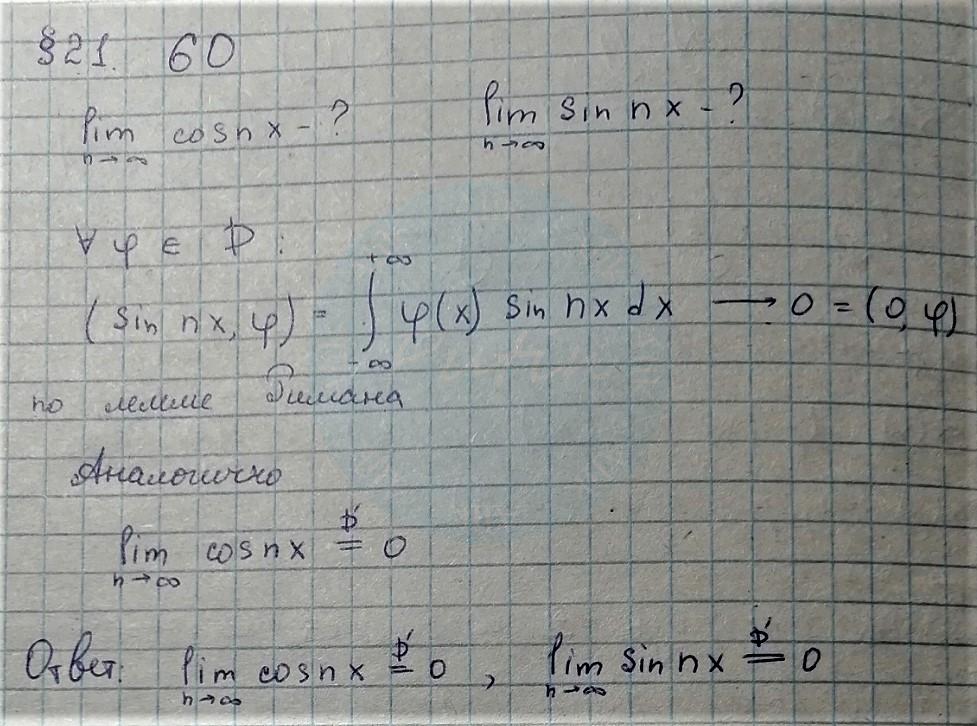 §21. 60
lim n→∞ cos nx - ? lim n→∞ sin nx - ?
∀ φ ∈ D :
(sin nx, φ) = ∫_{-∞}^{+∞} φ(x) sin nx dx ⟶ 0 = (0, φ)
по лемме Римана
Аналогично
lim n→∞ cos nx =^{D'} 0
Ответ: lim n→∞ cos nx =^{D'} 0 , lim n→∞ sin nx =^{D'} 0